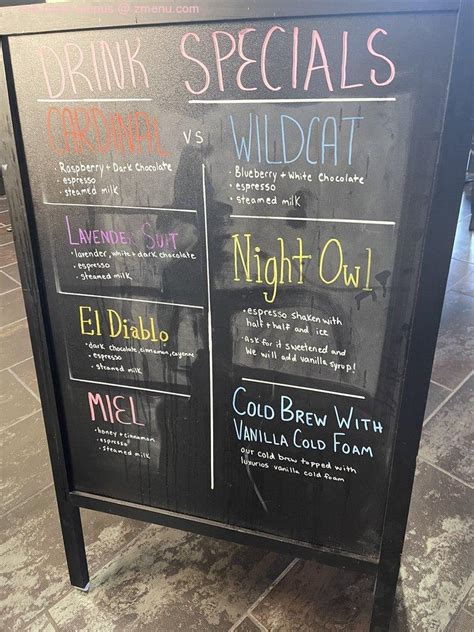 @ zmenu.com
DRINK SPECIALS
CARDINAL VS WILDCAT
· Raspberry + Dark Chocolate
· espresso
· steamed milk
· Blueberry + White Chocolate
· espresso
· steamed milk
LAVENDER SUIT
· lavender, white + dark chocolate
· espresso
· steamed milk
Night Owl
· espresso shaken with
half + half and ice
· Ask for it sweetened and
We will add vanilla syrup!
El Diablo
· dark chocolate, cinnamon, cayenne
· espresso
· steamed milk
MIEL
· honey + cinnamon
· espresso
· steamed milk
COLD BREW WITH
VANILLA COLD FOAM
our cold brew topped with
luxurios vanilla cold foam